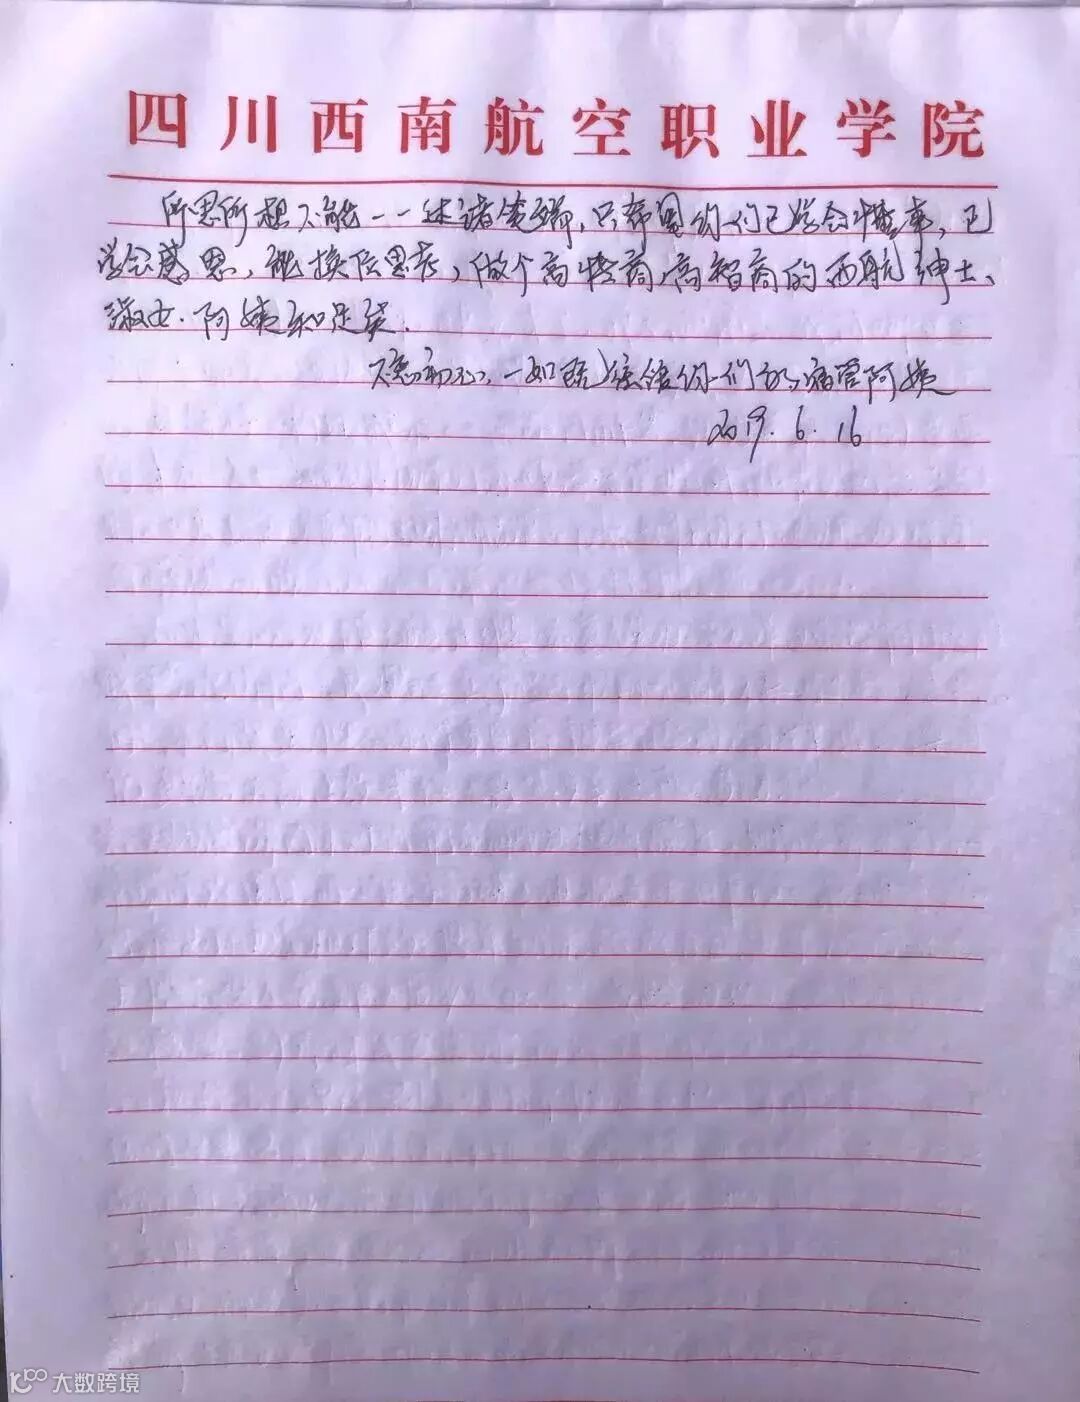 四川西南航空职业学院
所思所想不能一一述诸笔端，只希望你们已学会懂事，已
学会感恩，能换位思考，做个高情商、高智商的西航绅士、
淑女．阿姨和足矣．
不忘初心，一如既往绥你们的宿管阿姨
2019.6.16
大数跨境